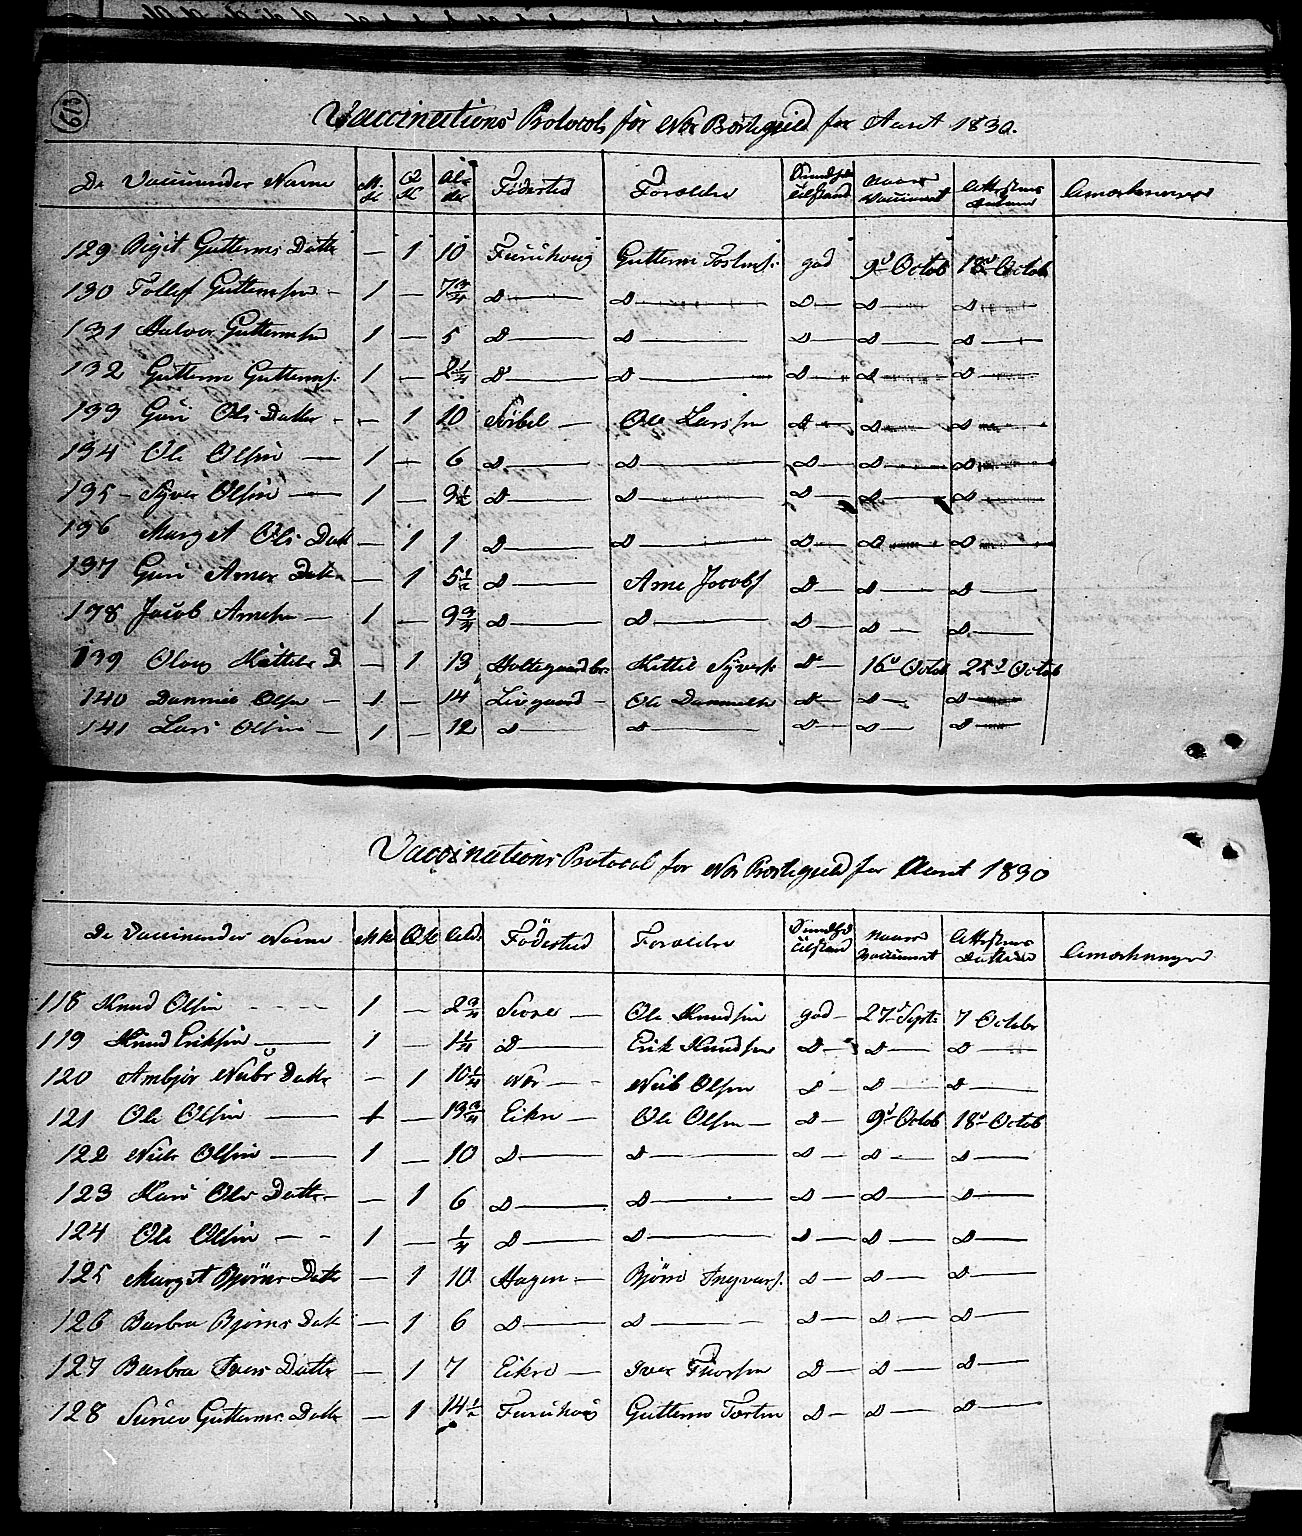 613
Vaccinations Protocol for Nør Børtegield for Aaret 1830.
De Vaccinerdes Navne | M K | Q K | Alder | Födested | Forældre | Sundheds Tilstand | Naar Vaccineret | Attestens Datum | Anmærkninger
129 Birgit Guttorms Datter — 1 10 Gutterm Torstens. god 9d Octob 18d Octob
130 Tollef Guttormsen — 1 — 7 3/4 D — D — D — D — D —
131 Halvor Guttormsen 1 — 5 D — D — D — D — D —
132 Guttorm Guttorms. 1 — 2 1/4 D — D — D — D — D —
133 Guri Ols Datter — — 1 10 Ole Larsen D — D — D —
134 Ole Olsen — 1 — 6 D — D — D — D — D —
135 — Syver Olsen — 1 — 3 1/2 D — D — D — D — D —
136 Margit Ols Datt — 1 1 D — D — D — D — D —
137 Guri Arnes Datter — 1 5 1/2 D — Arne Jacobs D — D — D —
138 Jacob Arnesen — 1 — 3 3/4 D — D — D — D — D —
139 Kittils D — 1 13 Kittil Syvers. D — 16d Octob 25d Octob
140 Olsen — 1 — 14 Livgaard — Ole D — D — D —
141 Lars Olsen — 1 — 12 D — D — D — D — D —
Vaccinations Protocol for Nør Børtegield for Aaret 1830
De Vaccinerdes Navne | M K | Q K | Ald. | Födested | Forældre | Sundheds Tilstand | Naar Vaccineret | Attestens Datum | Anmærkninger
118 Knud Olsen - - - 1 — 2 3/4 Ole Knudsen god — 27d Septr 7 Octobr
119 Knud Eriksen — 1 — 1 1/4 D — Erik Knudsen D — D — D —
120 Ambjör Niels Datter — 1 10 1/4 Nör — Niels Olsen D — D — D —
121 Ole Olsen — 1 — 13 3/4 Eikre — Ole Olsen — D — 9d Octob 18d Octob
122 Niels Olsen — 1 — 10 D — D — D — D — D —
123 Kari Ols Datter — — 1 6 D — D — D — D — D —
124 Ole Olsen — - 1 — 1/4 D — D — D — D — D —
125 Margit Bjørns Datter — 1 10 Hagen — Bjørn Ingvars. D — D — D —
126 Barbra Bjørns Datt — 1 6 D — D — D — D — D —
127 Barbra Ivers Datter — 1 7 Eikre — Iver Thorsen D — D — D —
128 Guttorms Datter — 1 14 1/2 Guttorm Torsten D — D — D —